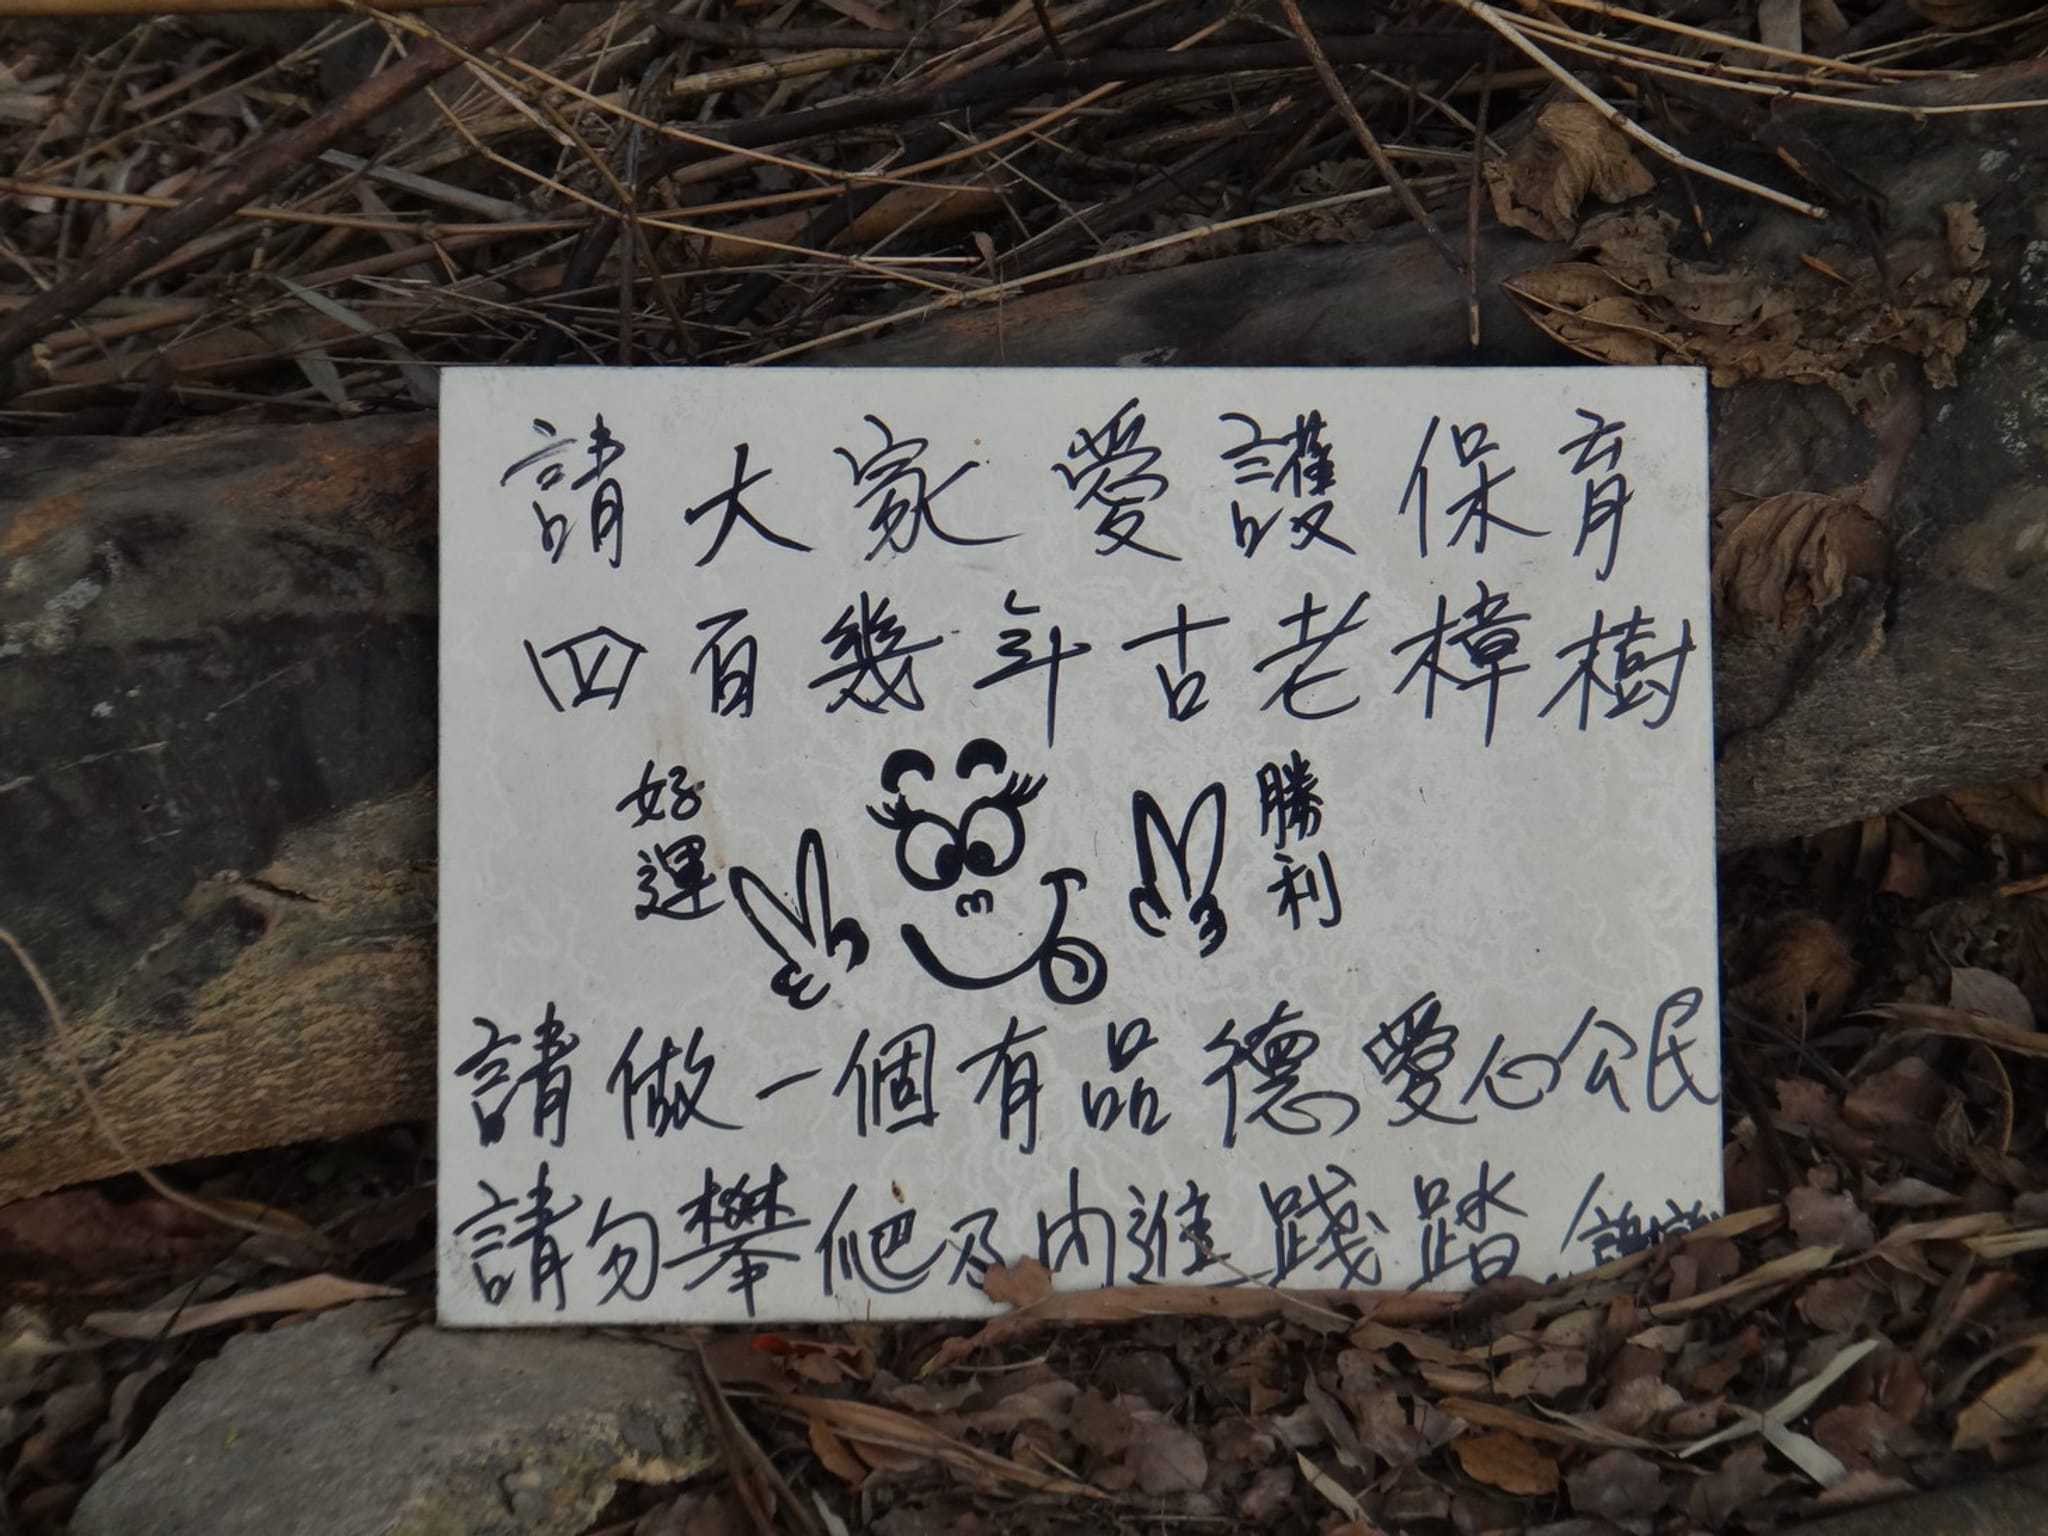 請大家愛護保育
四百幾年古老樟樹
好運
勝利
請做一個有品德愛心公民
請勿攀爬及內進踐踏 謝謝